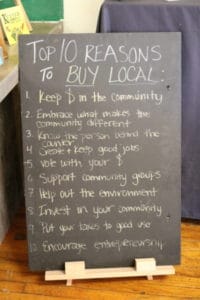 TOP 10 REASONS
TO BUY LOCAL:
1. Keep $ in the community
2. Embrace what makes the
community different
3. Know the person behind the
counter
4. Create + keep good jobs
5. Vote with your $
6. Support community groups
7. Help out the environment
8. Invest in your community
9. Put your taxes to good use
10. Encourage entrepreneurship